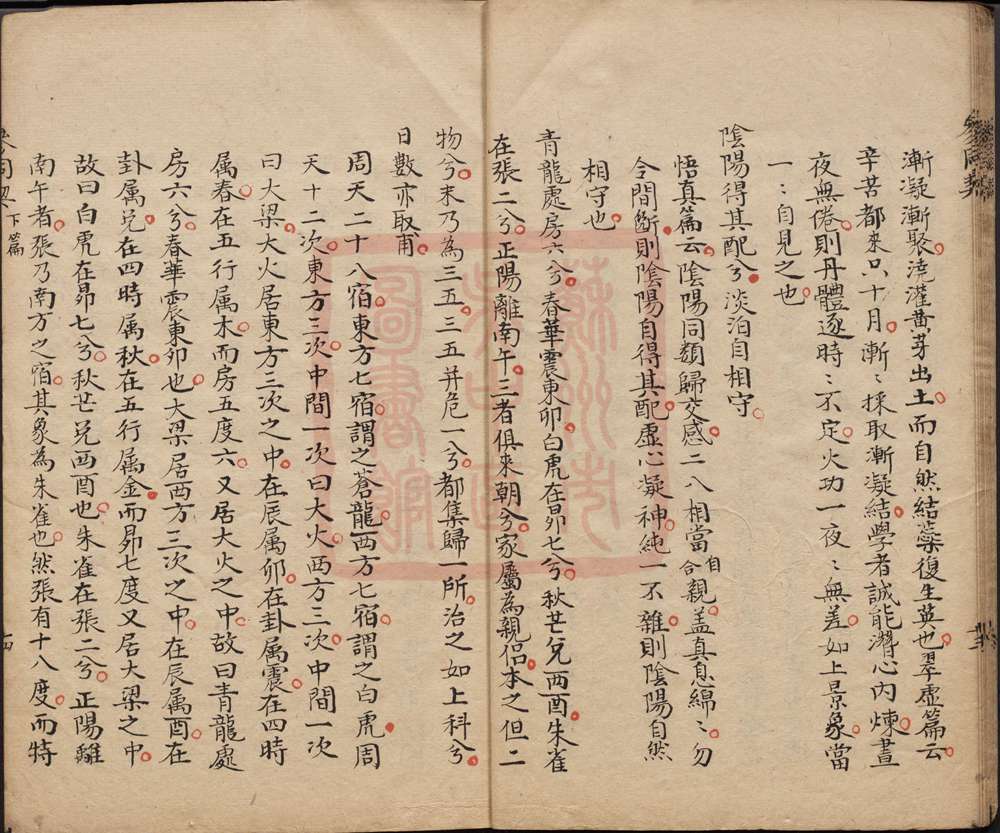 漸凝漸聚澆灌黃芽出土而自然結蘂復生英也翠虛篇云
辛苦都來只十月漸〻採取漸凝結學者誠能潛心內煉晝
夜無倦則丹體逐時〻不定火功一夜〻無差如上景象當
一〻自見之也
陰陽得其配兮淡泊自相守
悟真篇云陰陽同類歸交感二八相當自合親盖真息綿〻勿
令間斷則陰陽自得其配虛心凝神純一不雜則陰陽自然
相守也
青龍處房六兮春華震東卯白虎在昴七兮秋芒兌西酉朱雀
在張二兮正陽離南午三者俱來朝兮家屬為親侣本之但二
物兮末乃為三五三五并危一兮都集歸一所治之如上科兮
日數亦取甫
周天二十八宿東方七宿謂之蒼龍西方七宿謂之白虎周
天十二次東方三次中間一次曰大火西方三次中間一次
曰大梁大火居東方三次之中在辰属卯在卦属震在四時
属春在五行属木而房五度六又居大火之中故曰青龍處
房六兮春華震東卯也大梁居西方三次之中在辰属酉在
卦属兌在四時属秋在五行属金而昴七度又居大梁之中
故曰白虎在昴七兮秋芒兌西酉也朱雀在張二兮正陽離
南午者張乃南方之宿其象為朱雀也然張有十八度而特
參同契 下篇